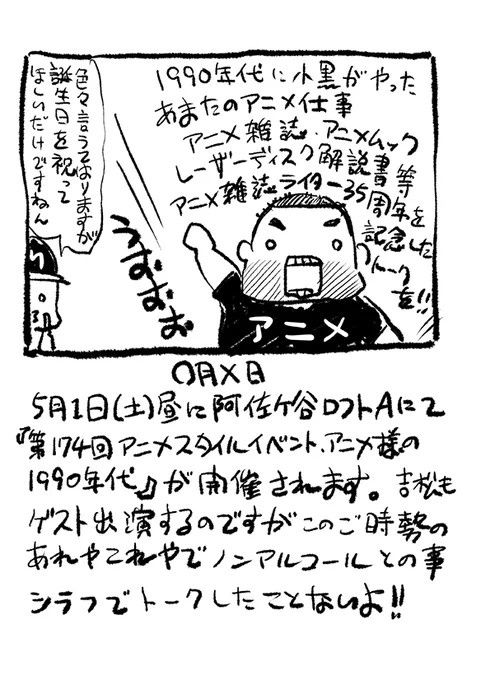 1990年代に小黒がやった
あまたのアニメ仕事
アニメ雑誌.アニメムック
レーザーディスク解説書等
アニメ雑誌ライター35周年を
記念した
トーク
を!!
色々言うておりますが
誕生日を祝って
ほしいだけですねん
うおおお
アニメ
〇月×日
5月1日(土)昼に阿佐ケ谷ロフトAにて
『第174回アニメスタイルイベント.アニメ様の
1990年代』が開催されます。吉松も
ゲスト出演するのですがこのご時勢の
あれやこれやでノンアルコールとの事
シラフでトークしたことないよ!!